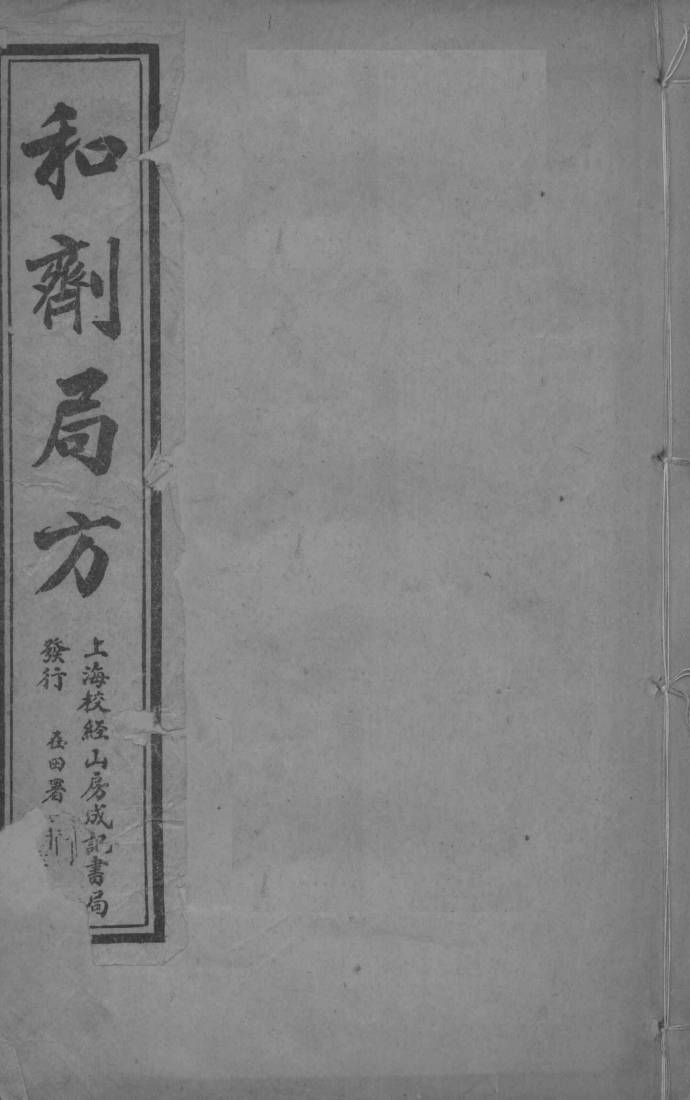 和劑局方
上海校經山房成記書局
發行 在田署